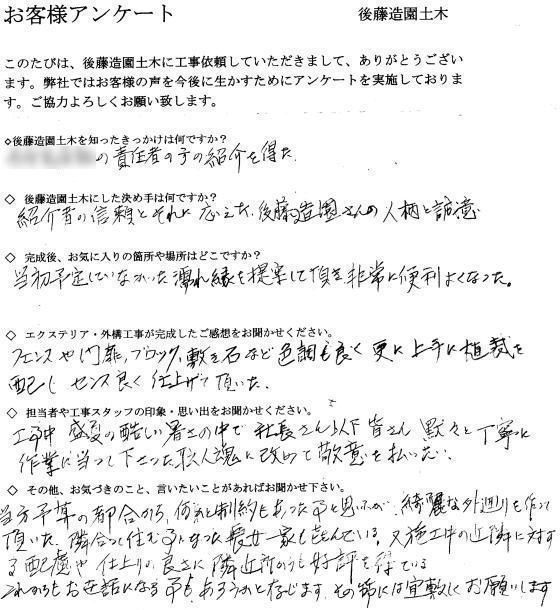 お客様アンケート 後藤造園土木
このたびは、後藤造園土木に工事依頼していただきまして、ありがとうござい
ます。弊社ではお客様の声を今後に生かすためにアンケートを実施しておりま
す。ご協力よろしくお願い致します。
◇後藤造園土木を知ったきっかけは何ですか?
の責任者の子の紹介を得た
◇ 後藤造園土木にした決め手は何ですか?
紹介者の信頼とそれに応えた、後藤造園さんの人柄と誠意
◇ 完成後、お気に入りの箇所や場所はどこですか?
当初予定していなかった濡れ縁を提案して頂き非常に便利よくなった。
◇ エクステリア・外構工事が完成したご感想をお聞かせください。
フェンスや門扉、ブロック、敷き石など色調も良く更に上手に植栽を
配し センス良く仕上げて頂いた。
◇ 担当者や工事スタッフの印象・思い出をお聞かせください。
工事中 盛夏の酷しい暑さの中で 社長さん以下皆さん 黙々と丁寧に
作業に当って下さった職人魂に改めて敬意を払いたい。
◇ その他、お気づきのこと、言いたいことがあればお聞かせ下さい。
当方予算の都合から、何気と制約もあった事と思いますが、綺麗な外廻りを作って
頂いた。隣合って住む事になった長女一家も喜んでいる。又施工中の近隣に対す
る配慮や仕上りの良さに隣近所のうち好評を得ている
これからもお世話になる事もあろうかと存じます。その節には宜敷しくお願いします